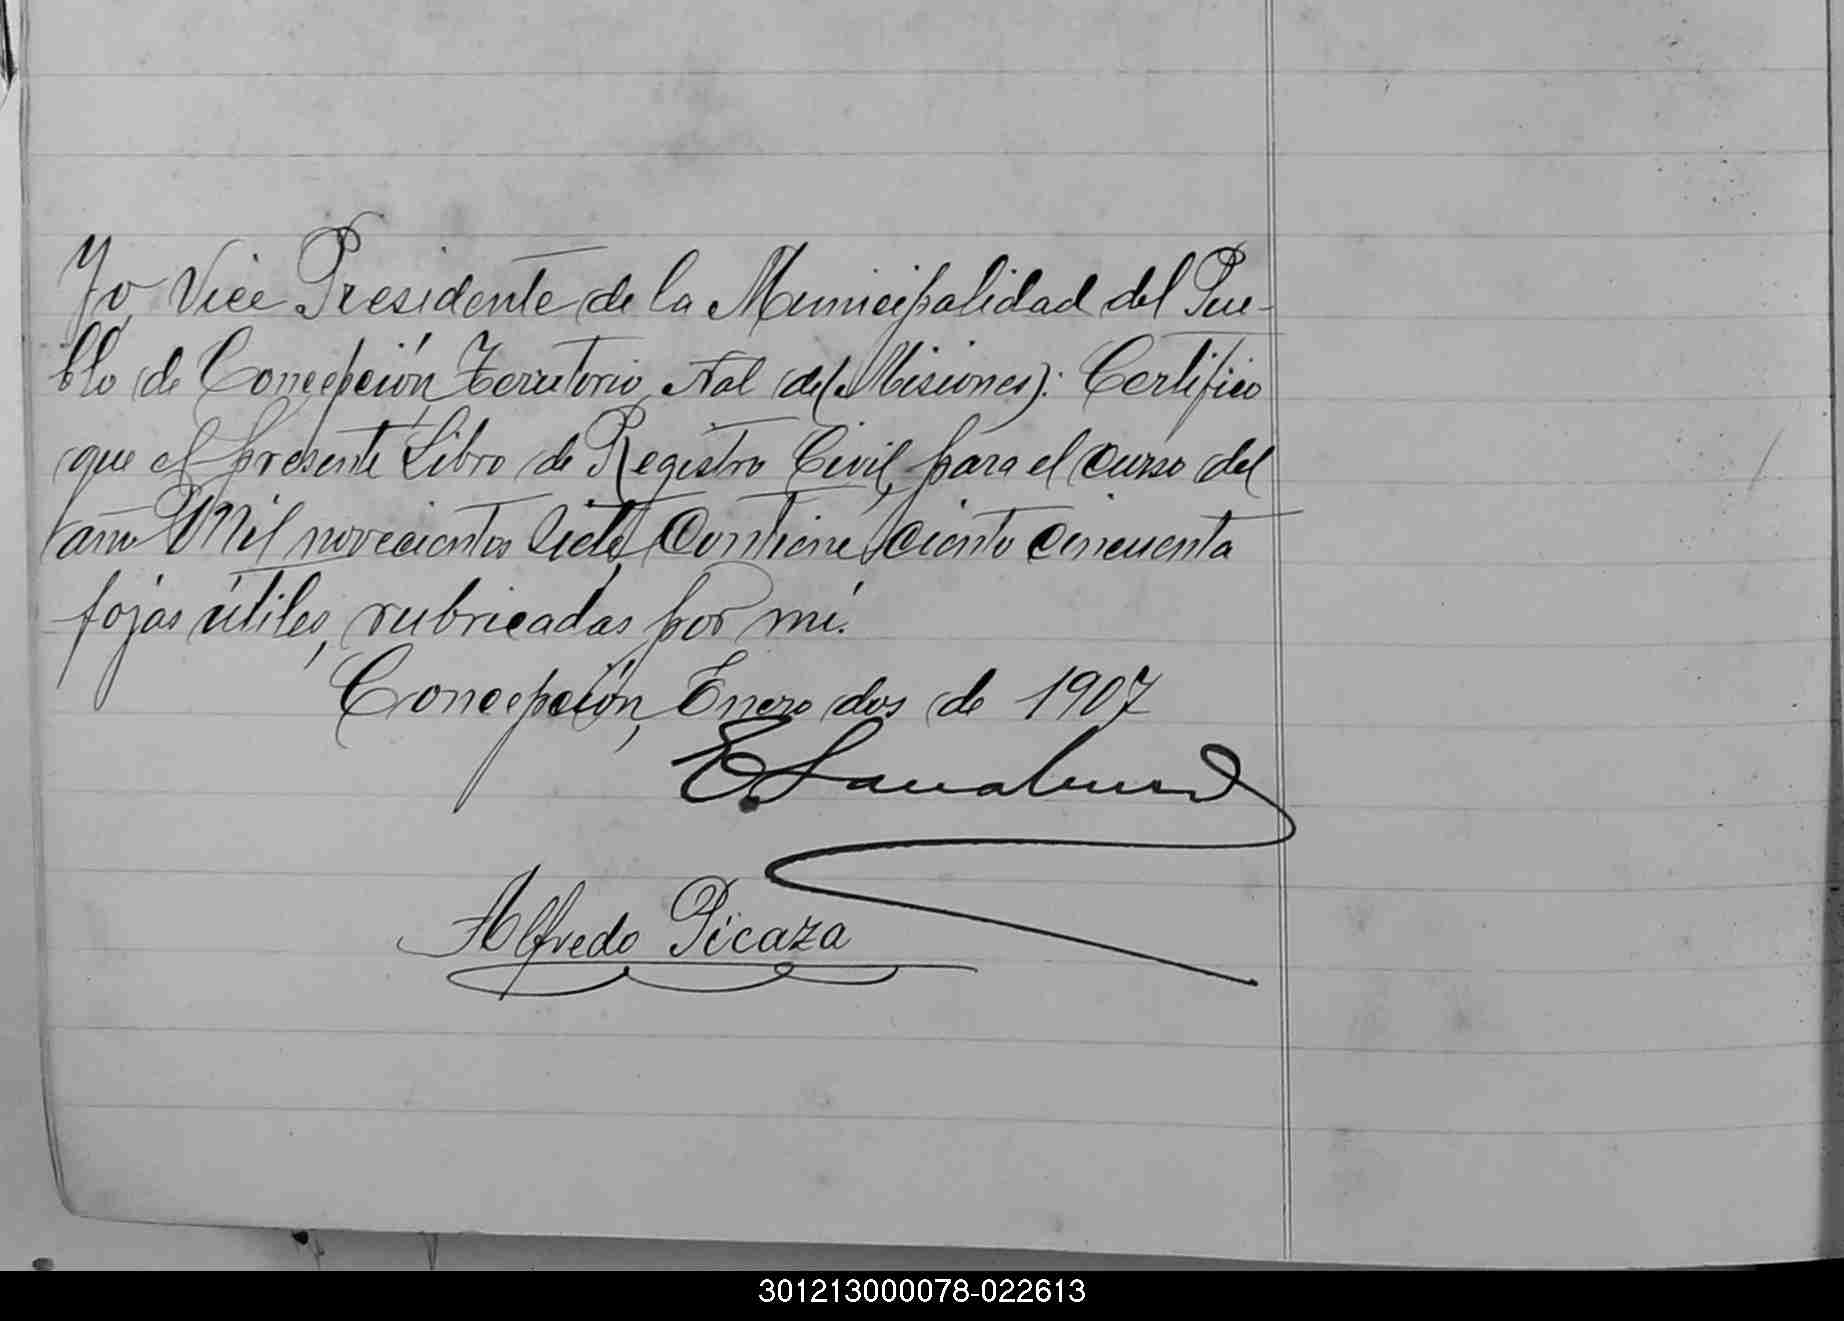 Yo Vice Presidente de la Municipalidad del Pue-
blo de Concepción Territorio Nal de (Misiones): Certifico
que el presente Libro de Registro Civil, para el curso del
año Mil novecientos siete, contiene ciento cincuenta
fojas útiles, rubricadas por mí.
Concepción, Enero dos de 1907
E.
Alfredo Picaza
301213000078-022613